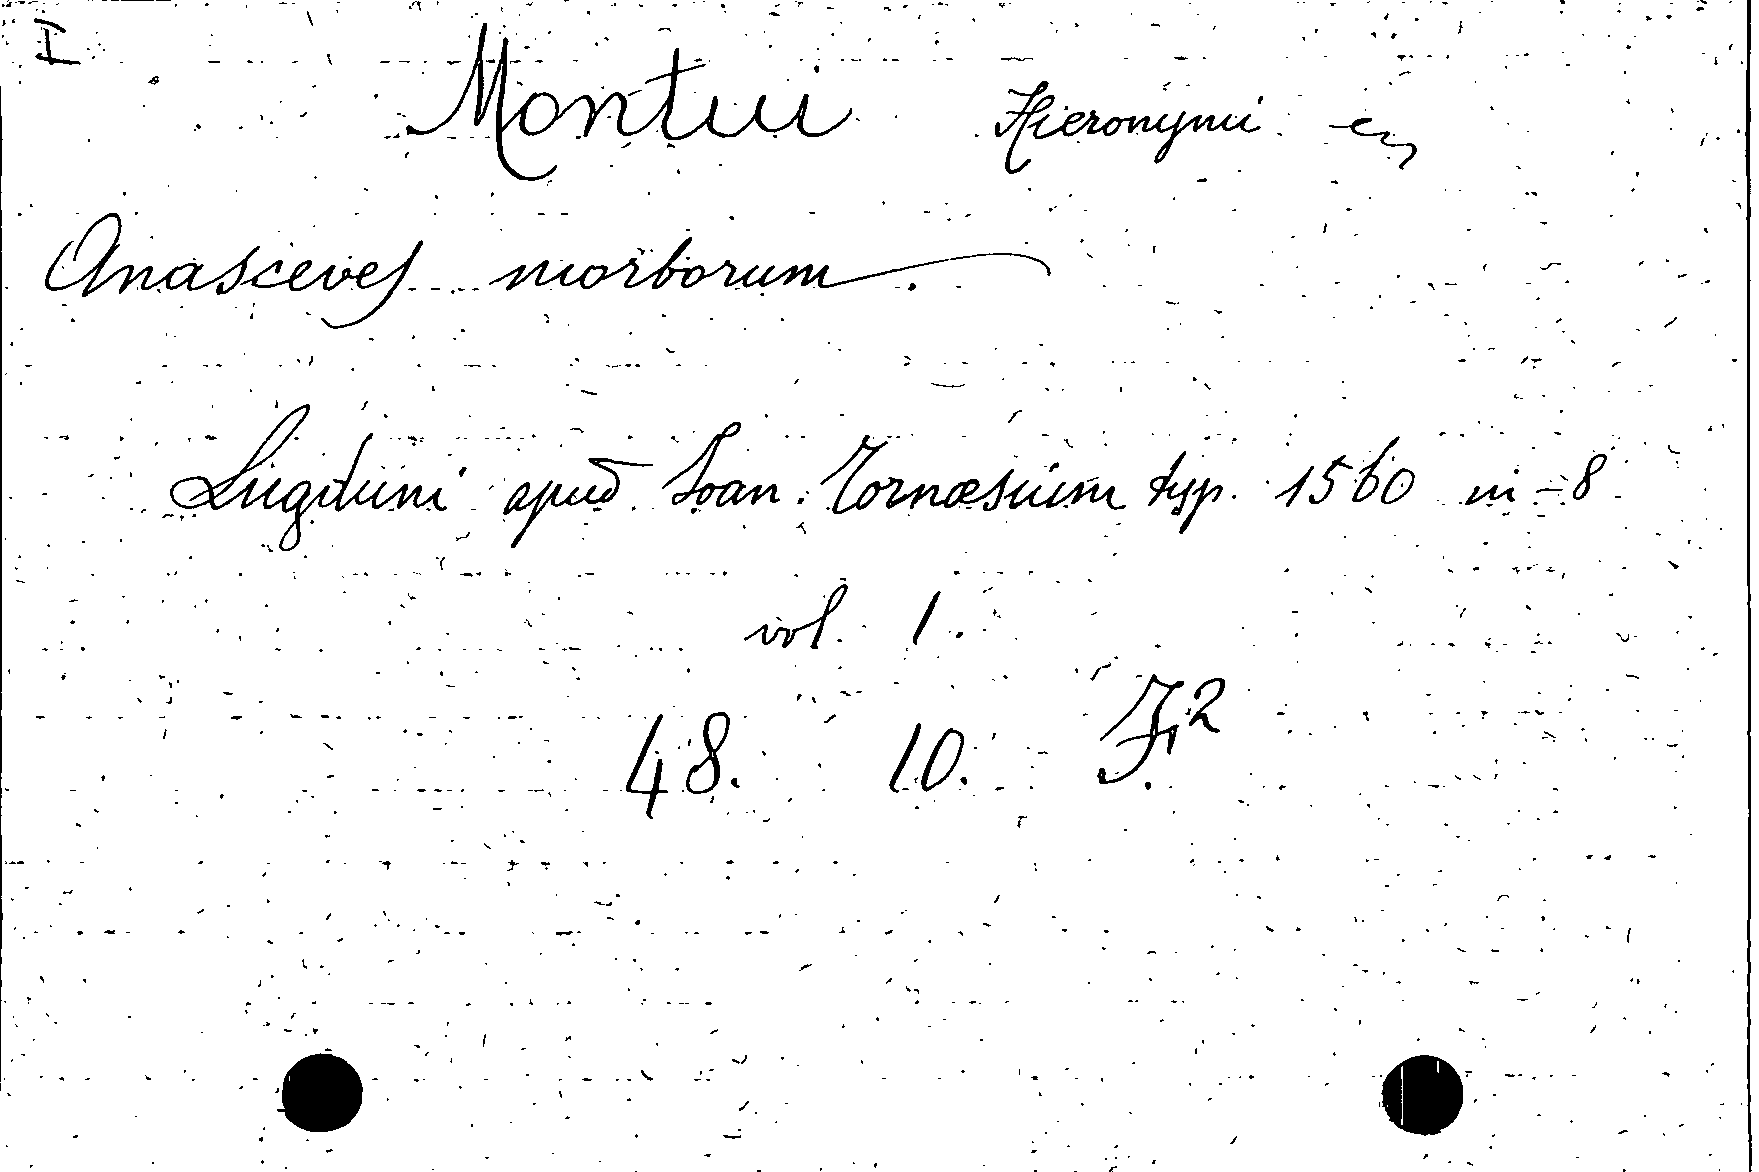 I
Montui Hieronymi
Anasceves morborum.
Lugduni apud Joan. Tornæsium typ. 1560 in-8
vol. 1.
48. 10. F.²